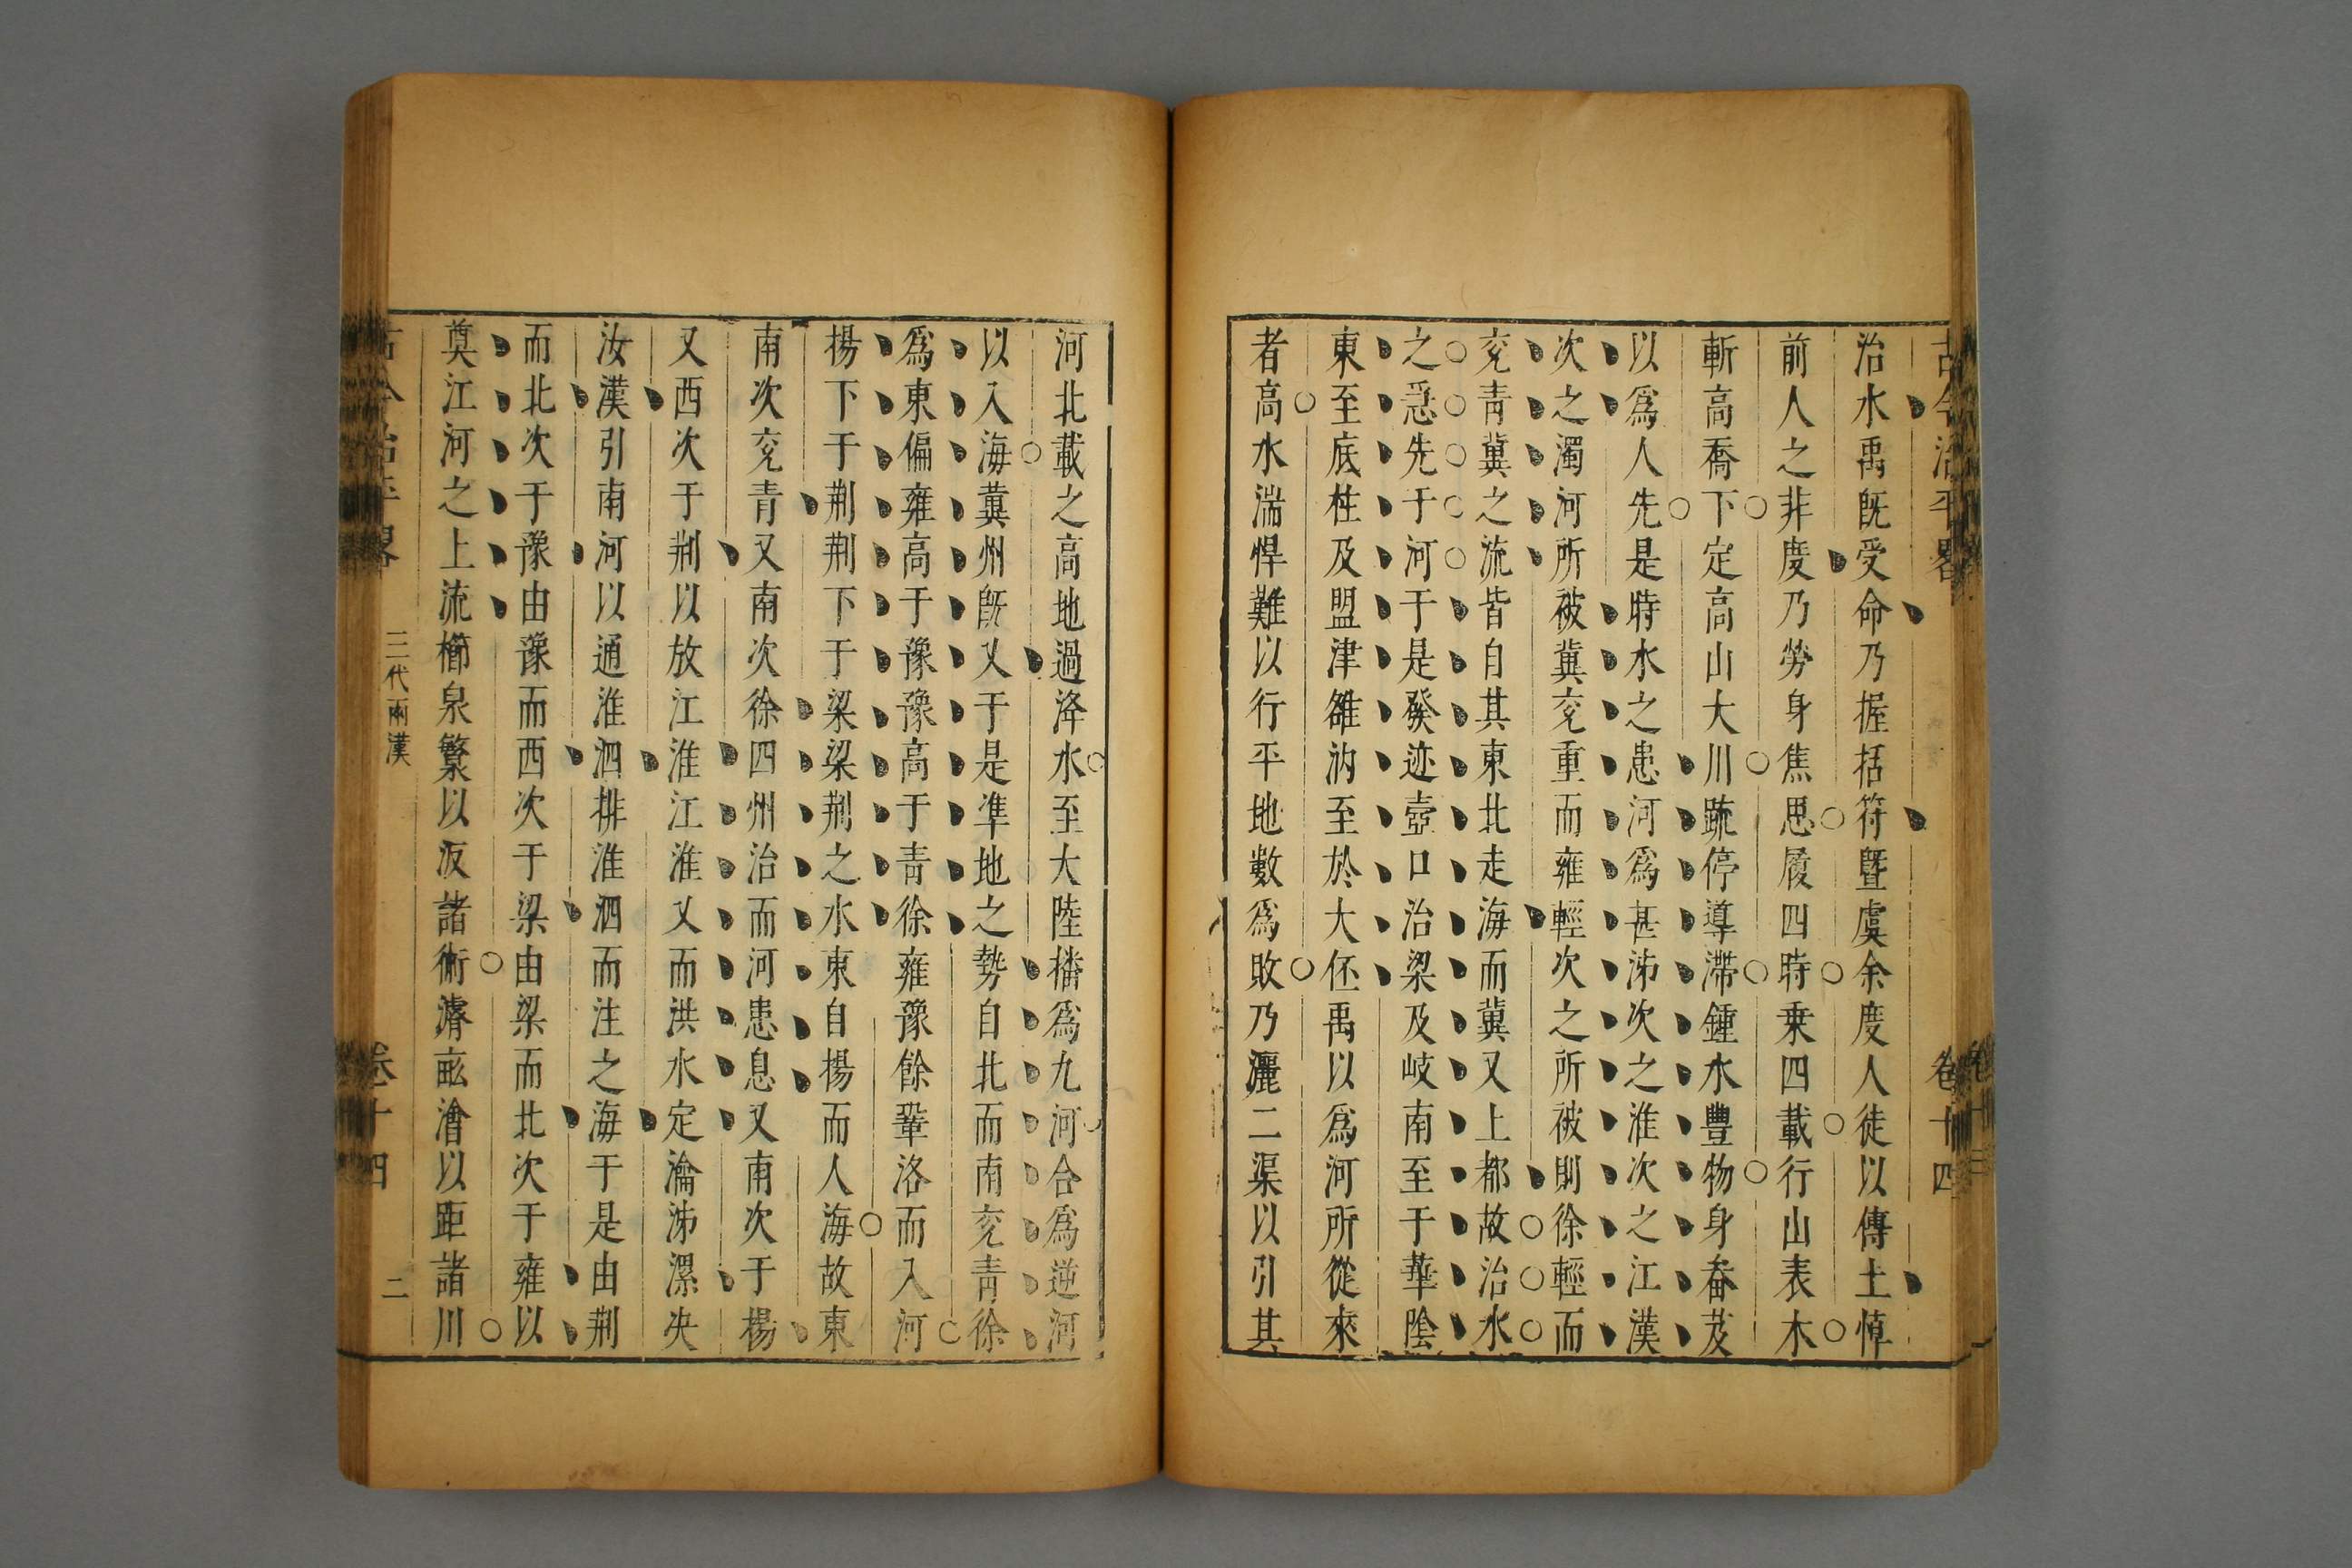 古今治平畧 卷十四
治水禹既受命乃握括符曁虞余度人徒以傳土悼
前人之非度乃勞身焦思履四時乘四載行山表木
斬高喬下定高山大川䟽停導滯鍾水豐物身畚芟
以爲人先是時水之患河爲甚泲次之淮次之江漢
次之濁河所被冀兖重而雍輕次之所被則徐輕而
兖青冀之流皆自其東北走海而冀又上都故治水
之急先于河于是發迹壺口治梁及岐南至于華陰
東至底柱及盟津雒汭至於大伾禹以爲河所從來
者高水湍悍難以行平地數爲敗乃灑二渠以引其
河北載之高地過洚水至大陸播爲九河合爲逆河
以入海冀州旣乂于是凖地之勢自北而南兖青徐
爲東偏雍高于豫豫高于青徐雍豫餘鞏洛而入河
揚下于荆荆下于梁梁荆之水東自揚而人海故東
南次兖青又南次徐四州治而河患息又南次于楊
又西次于荆以放江淮江淮乂而洪水定瀹泲漯决
汝漢引南河以通淮泗排淮泗而注之海于是由荆
而北次于豫由豫而西次于梁由梁而北次于雍以
奠江河之上流櫛泉繁以汳諸術濬畝澮以距諸川
三代兩漢 卷十四 二